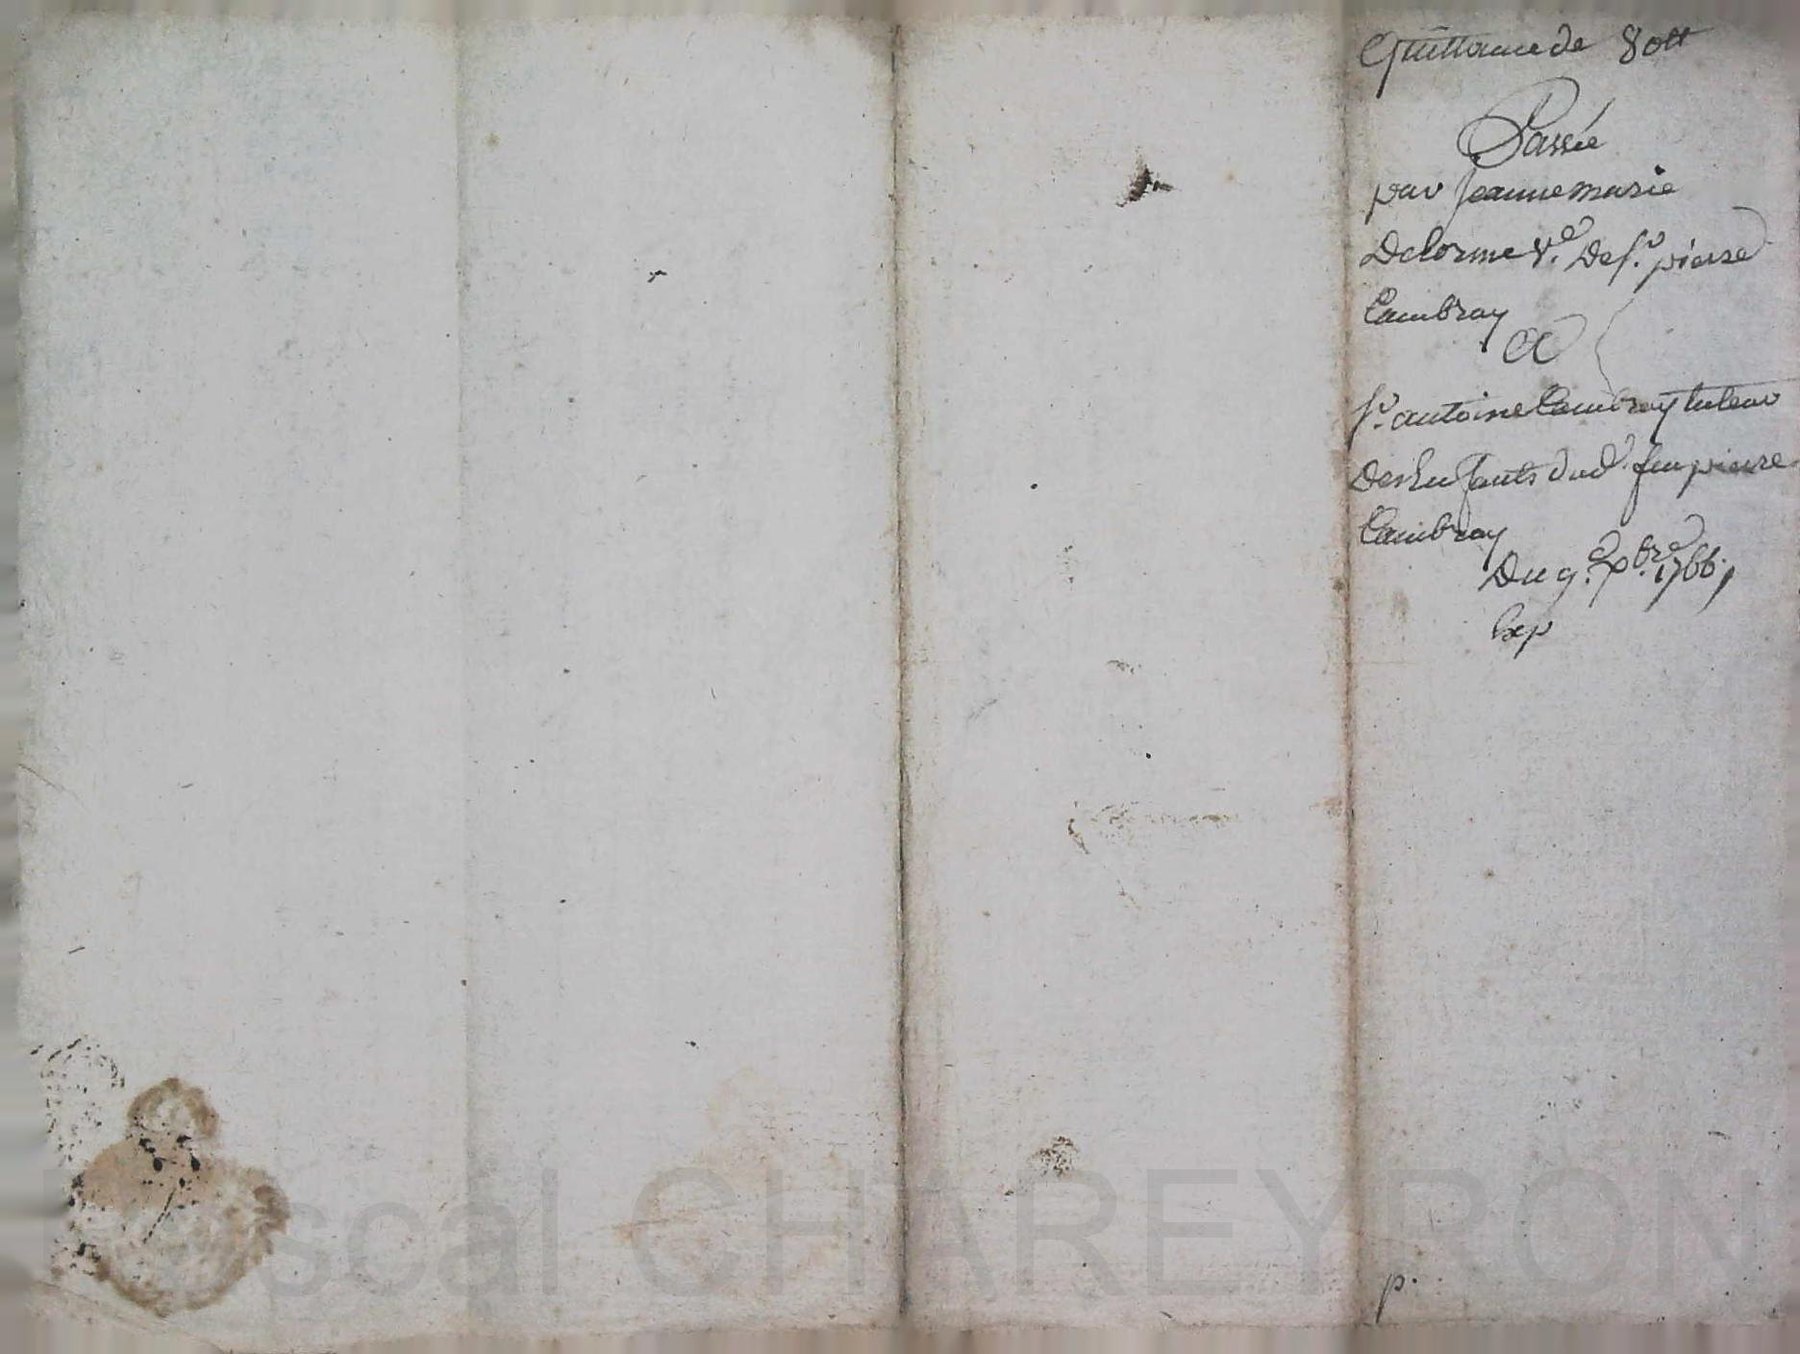 Quittance de 80tt
Passée
par Jeanne marie
Delorme Ve. De Sr. pierre
Cambray
A
Sr. antoine Cambray tuteur
Des Enfants dud. feu pierre
Cambray
Du 9.e Xbre. 1766.
Exp
p.
Pascal CHAREYRON